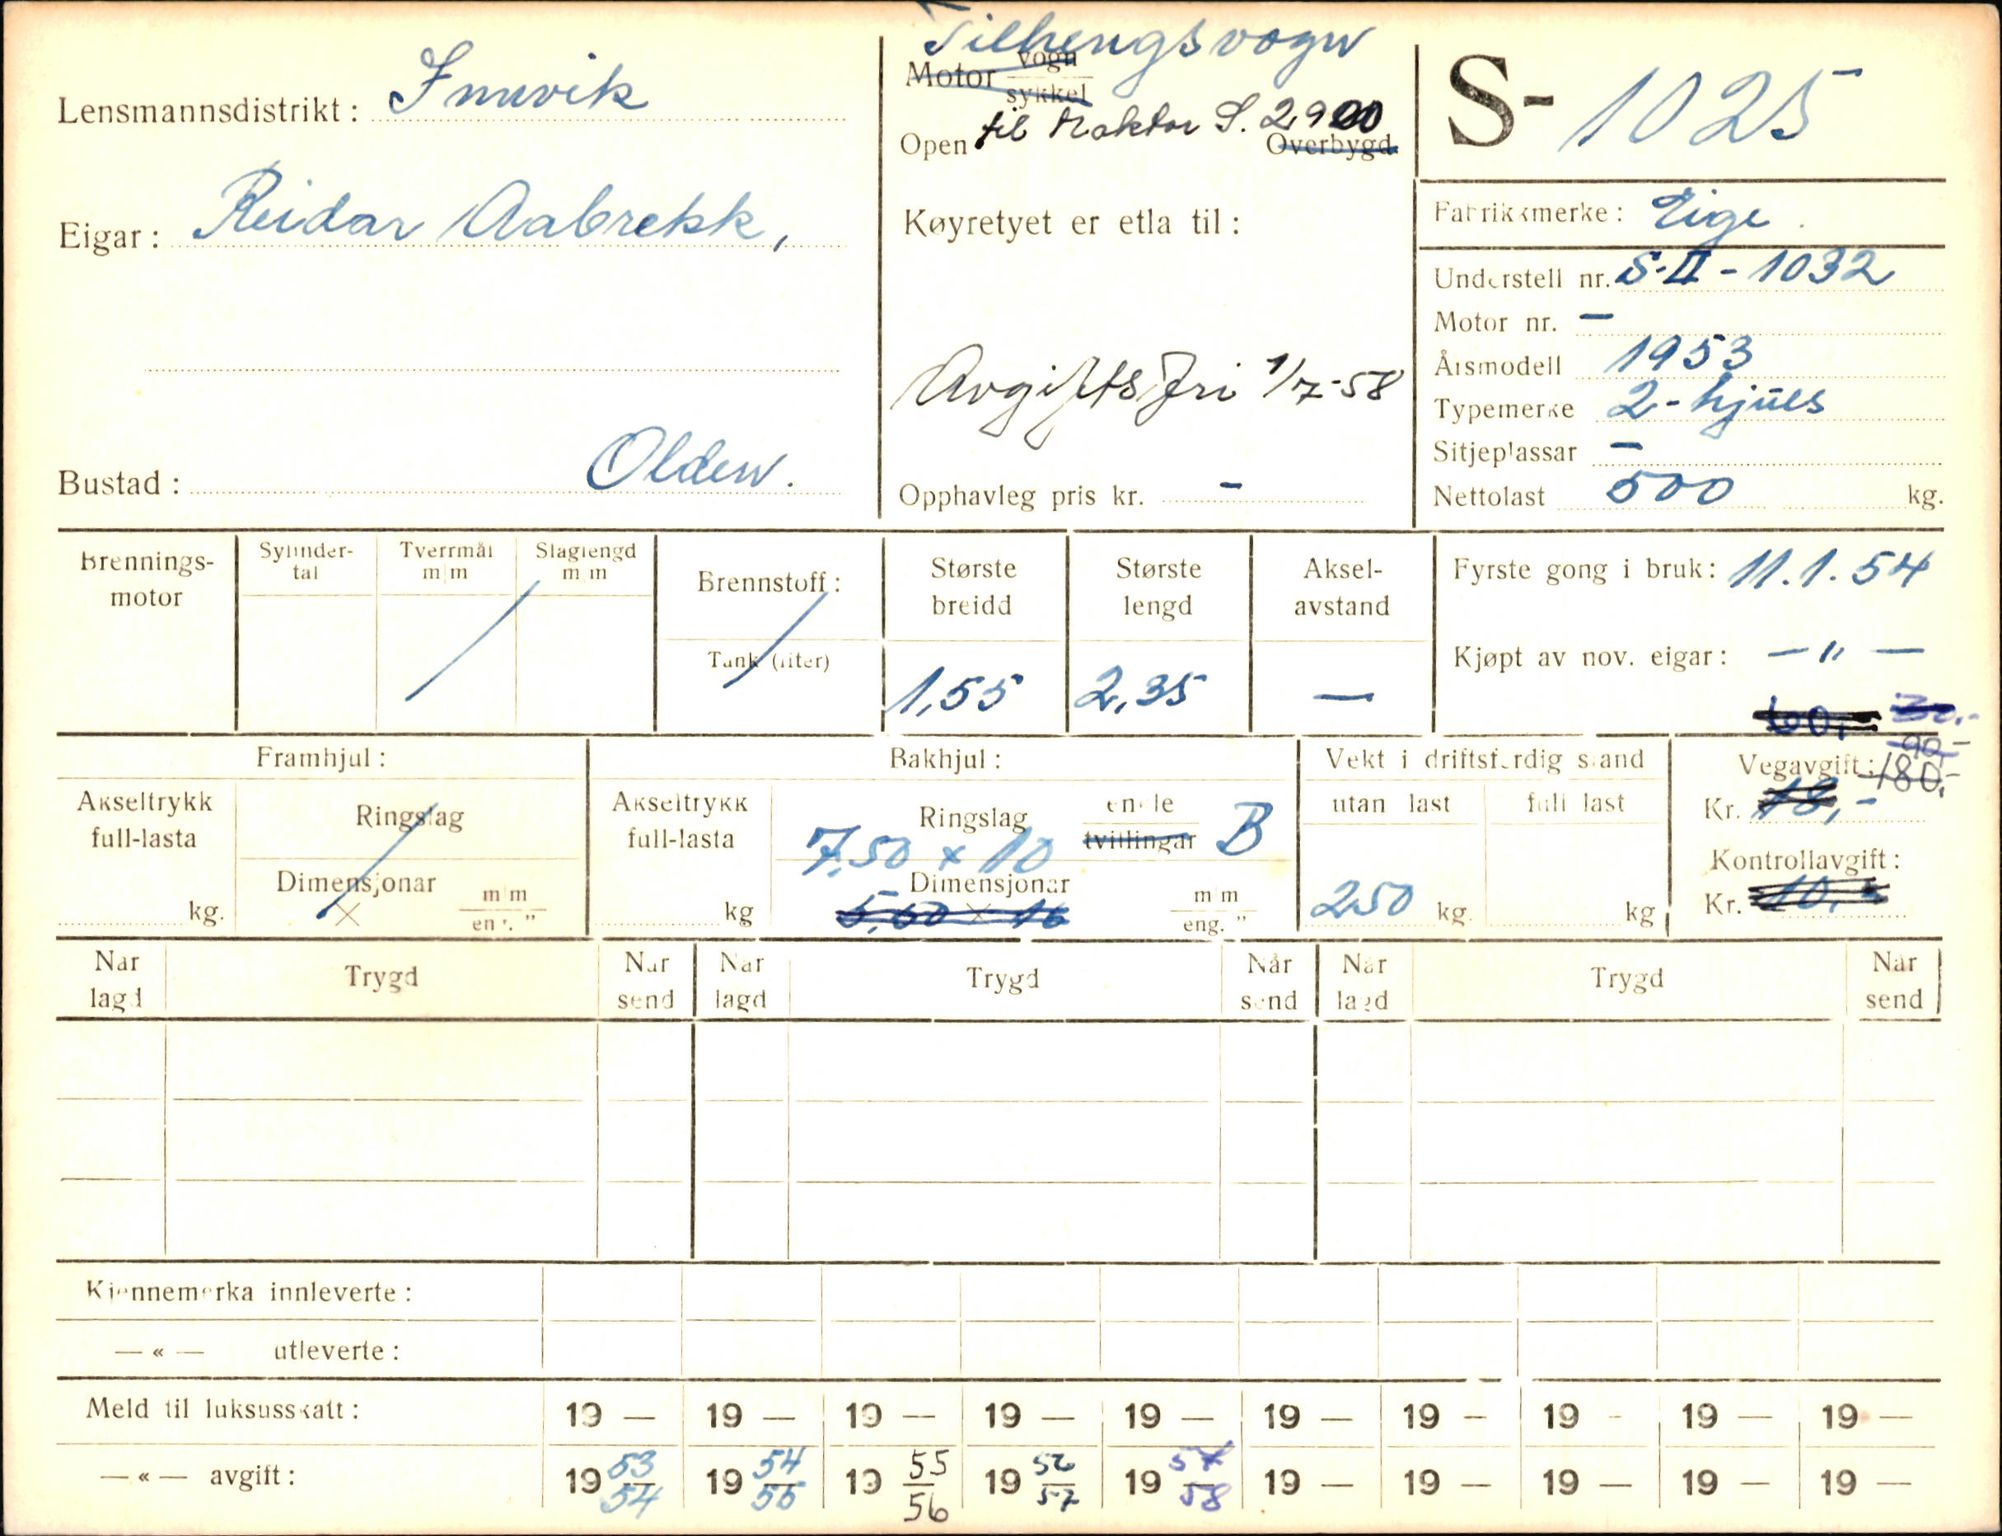 Lensmannsdistrikt: Innvik
Eigar: Reidar Aabrekk,
Bustad: Olden.
Tilhengsvogn
Motor vogn
sykkel
til traktor S. 2900
Open Overbygd
Køyretyet er etla til:
Avgiftsfri 1/7-58
Opphavleg pris kr. -
S- 1025
Fabrikkmerke: Eige.
Understell nr. S-II-1032
Motor nr. -
Årsmodell 1953
Typemerke 2-hjuls
Sitjeplassar -
Nettolast 500 kg.
Brennings-
motor
Sylinder-
tal
Tverrmål
m/m
Slaglengd
m/m
Brennstoff:
Tank (liter)
Største
breidd
1,55
Største
lengd
2,35
Aksel-
avstand
—
Fyrste gong i bruk: 11.1.54
Kjøpt av nov. eigar: — " —
Framhjul:
Akseltrykk
full-lasta
kg.
Ringslag
Dimensjonar
×
m/m
eng. "
Bakhjul:
Akseltrykk
full-lasta
kg
Ringslag enkle
tvillingar B
7,50 x 10
Dimensjonar
5,60 × 16
m/m
eng. "
Vekt i driftsferdig stand
utan last
250 kg.
full last
kg
60,- 30,-
90,-
Vegavgift: 180,-
Kr. 18,-
Kontrollavgift:
Kr. 10,-
Når
lagd
Trygd
Når
send
Når
lagd
Trygd
Når
send
Når
lagd
Trygd
Når
send
Kjennemerka innleverte:
— « — utleverte:
Meld til luksusskatt: 19 — 19 — 19 — 19 — 19 — 19 — 19 — 19 — 19 — 19 —
— « — avgift: 19 53/54 19 54/55 19 55/56 19 56/57 19 57/58 19 — 19 — 19 — 19 — 19 —